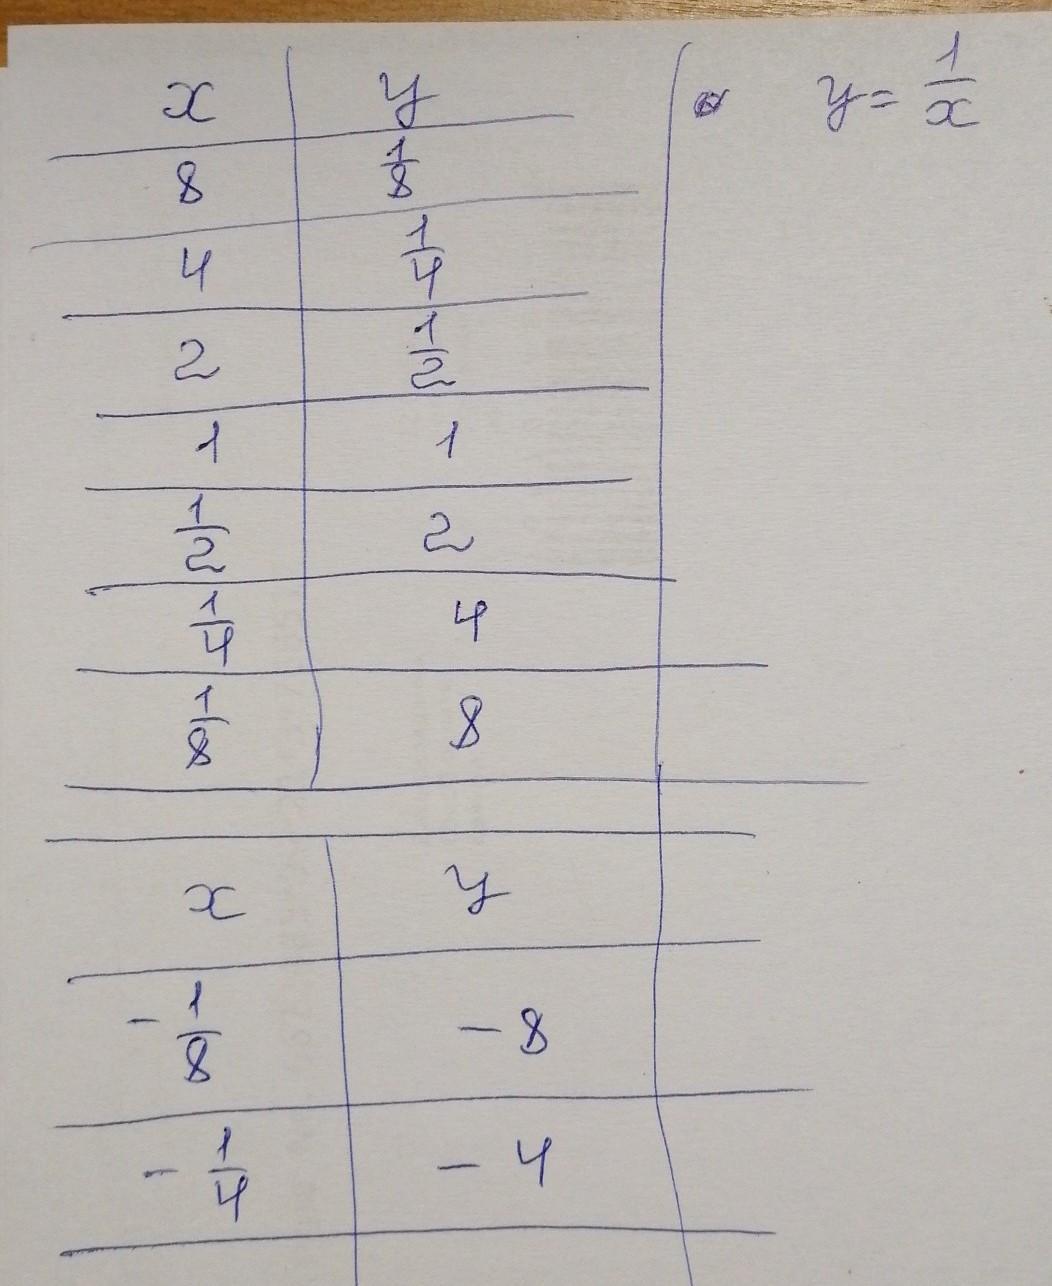 x y y = 1/x
8 1/8
4 1/4
2 1/2
1 1
1/2 2
1/4 4
1/8 8
x y
-1/8 -8
-1/4 -4